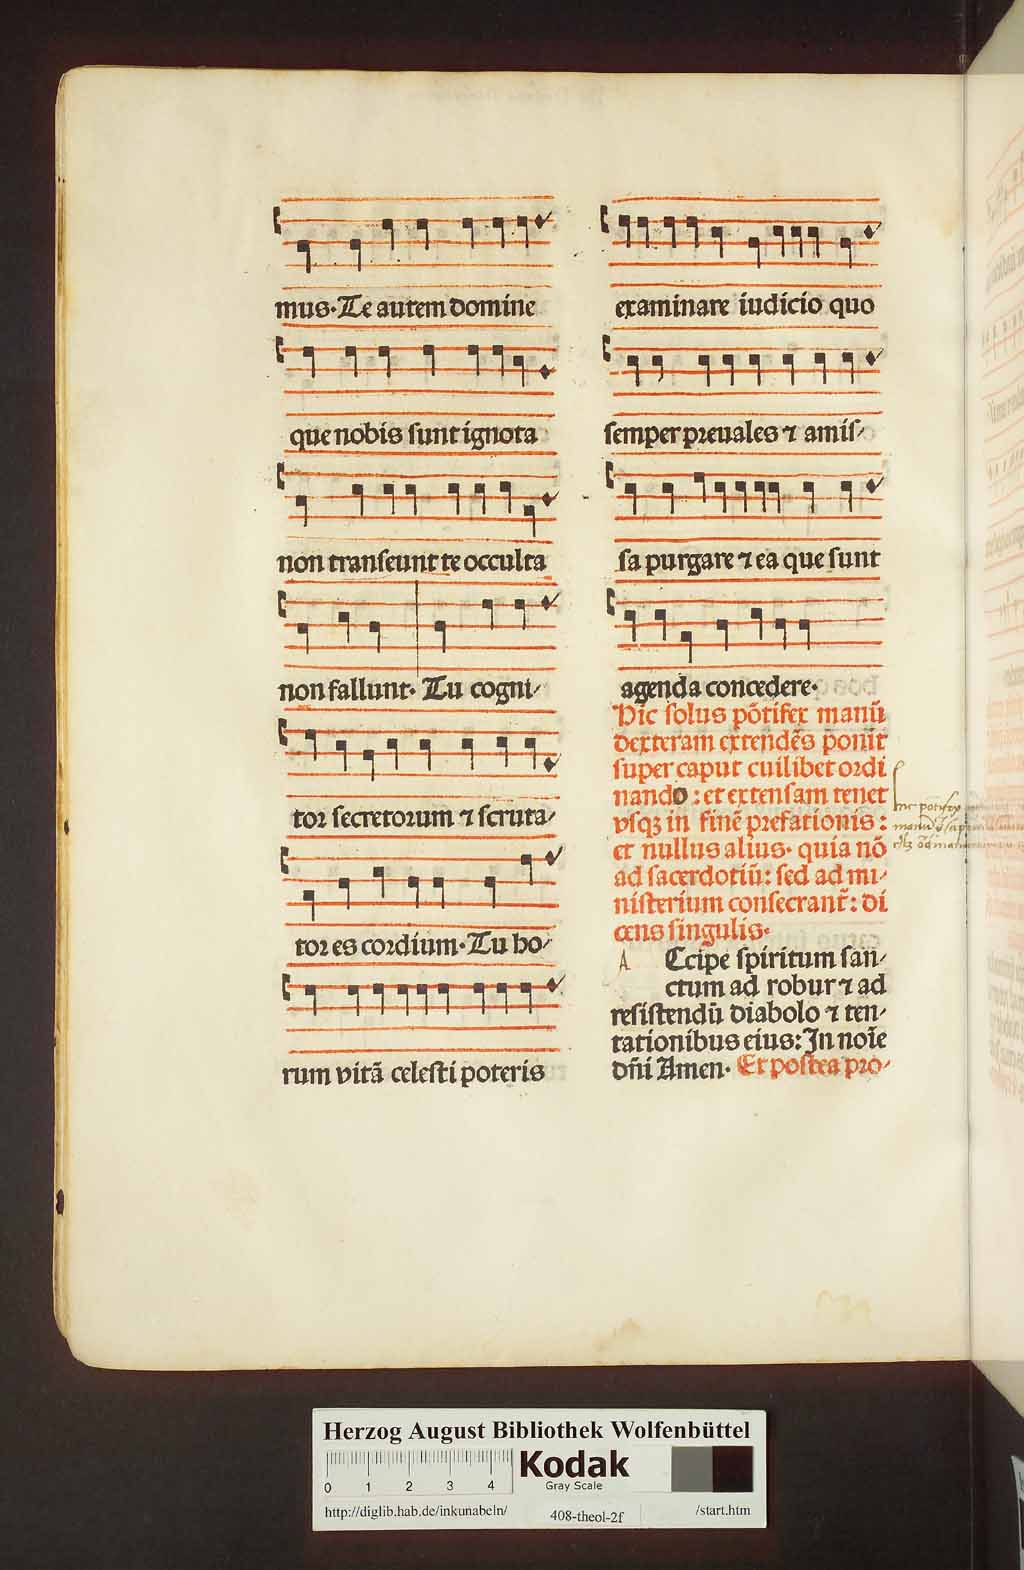 mus. Te autem domine
que nobis sunt ignota
non transeunt te occulta
non fallunt. Tu cogni⸗
tor secretorum ⁊ scruta⸗
tor es cordium. Tu ho⸗
rum vitā celesti poteris
examinare iudicio quo
semper preuales ⁊ amis⸗
sa purgare ⁊ ea que sunt
agenda concedere.
Hic solus pōtifex manū
dexteram extendēs ponit
super caput cuilibet ordi
nando : et extensam tenet
vsqꝫ in finē prefationis :
et nullus alius. quia nō
ad sacerdotiū : sed ad mi⸗
nisterium consecrant̃ : di
cens singulis.
A Ccipe spiritum san⸗
ctum ad robur ⁊ ad
resistendū diabolo ⁊ ten⸗
tationibus eius: In noīe
dn̄i Amen. Et postea pro⸗
hic pōtifex
manū
Herzog August Bibliothek Wolfenbüttel
0 1 2 3 4
Kodak
Gray Scale
http://diglib.hab.de/inkunabeln/ 408-theol-2f /start.htm